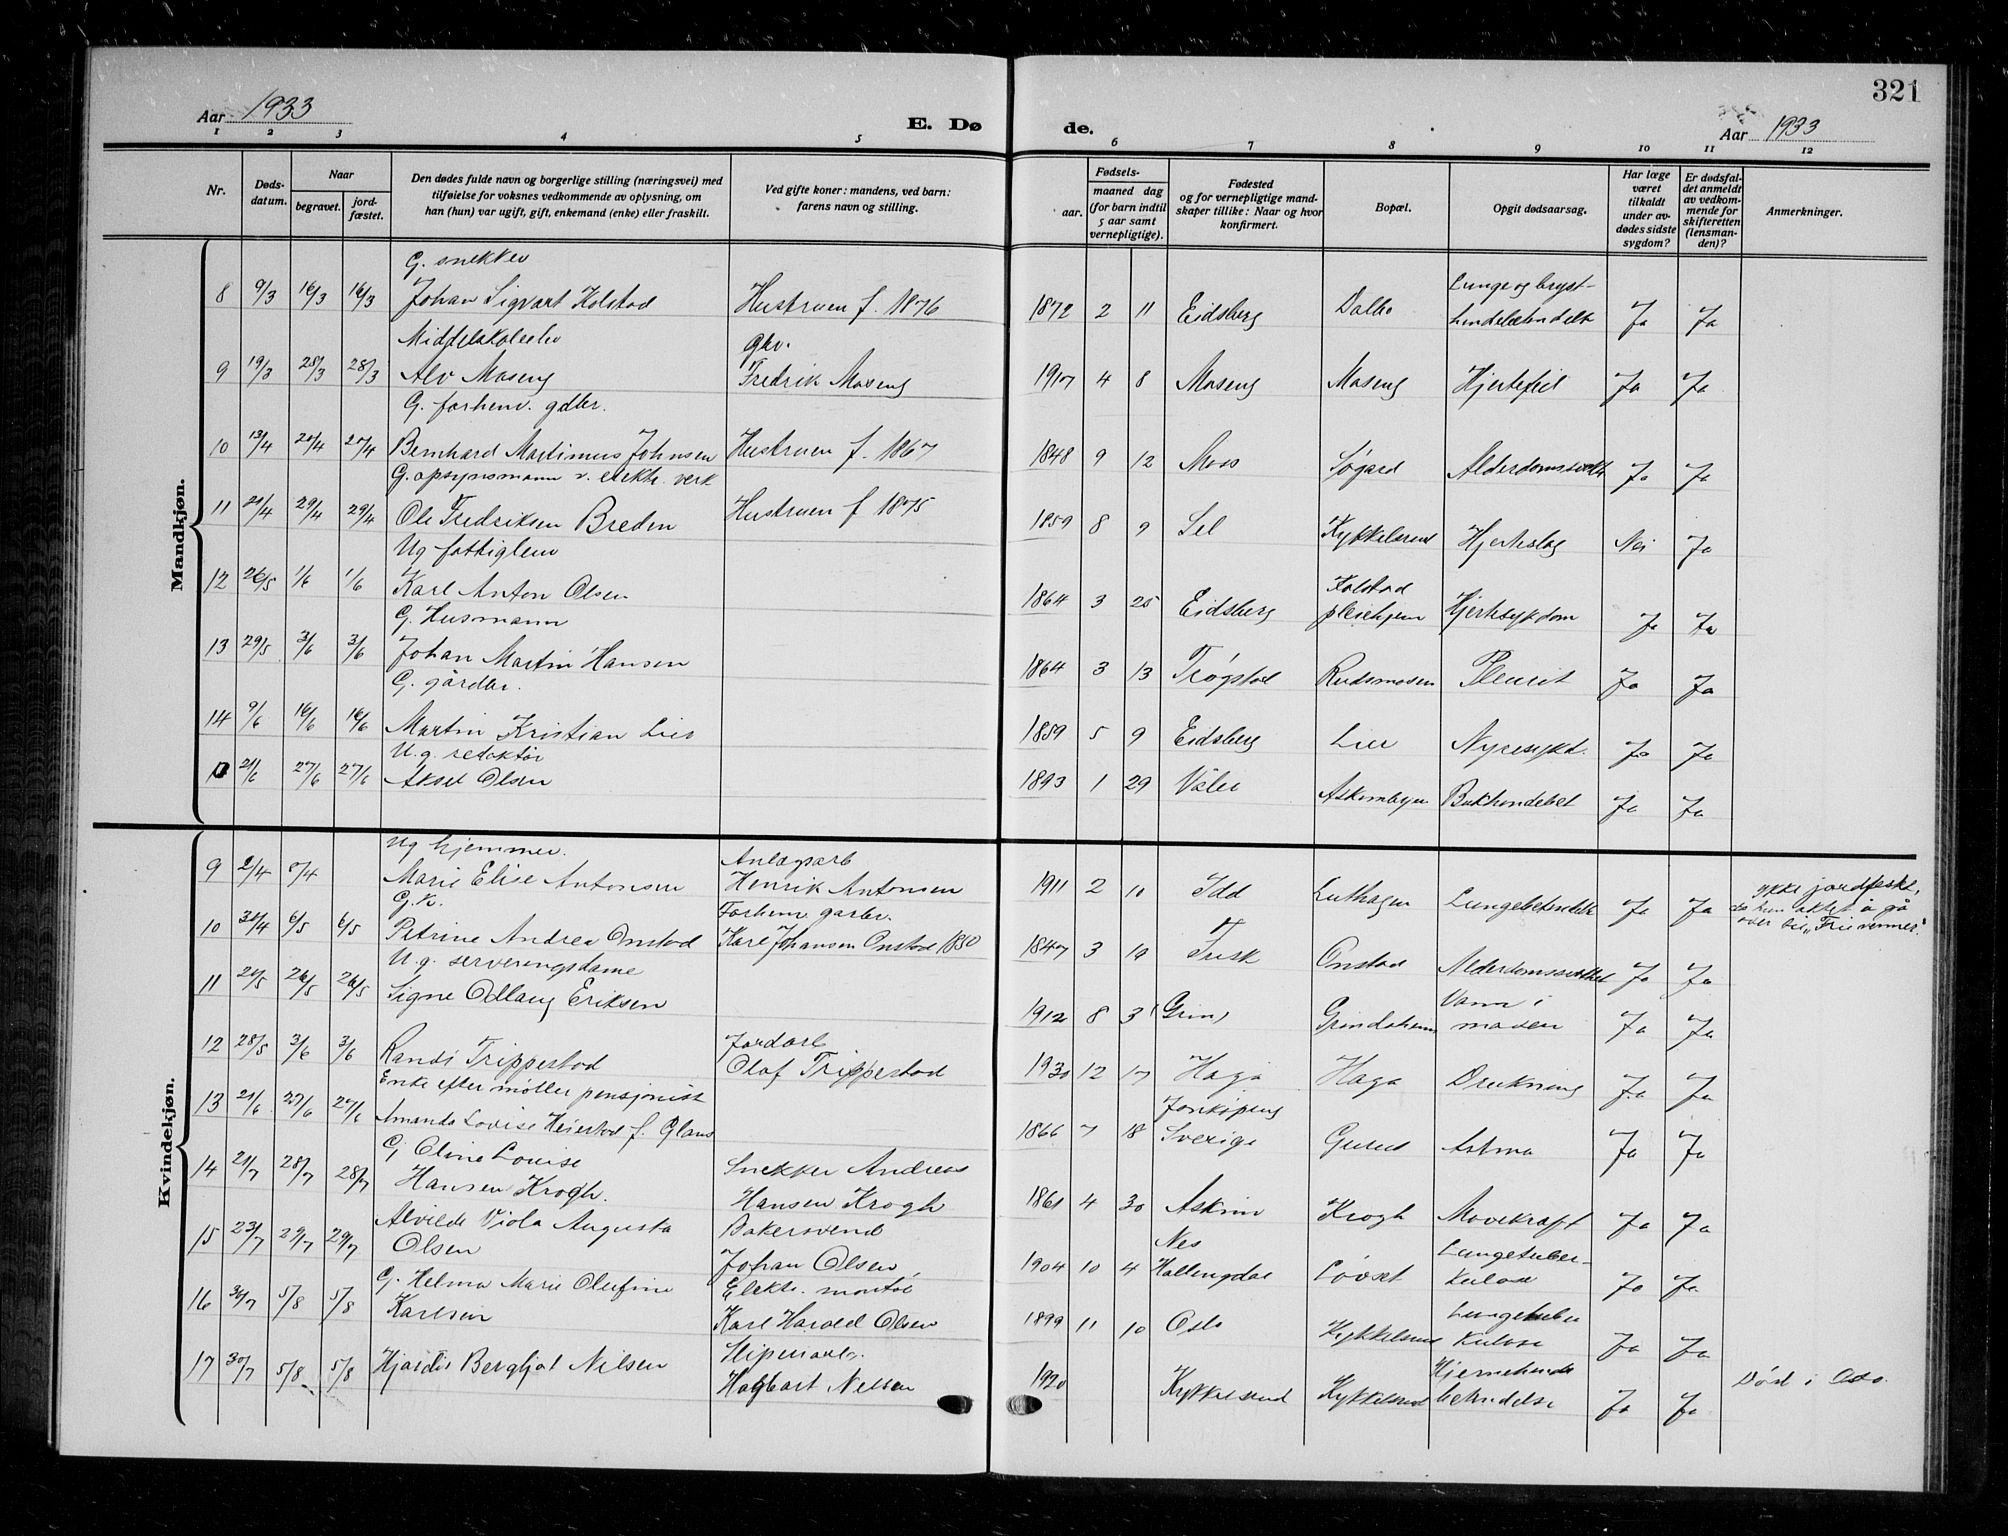 321
Aar 1933
E. Dø
de.
Aar 1933
1 2 3 4 5 6 7 8 9 10 11 12
Nr.
Døds-
datum.
Naar
begravet.
jord-
fæstet.
Den dødes fulde navn og borgerlige stilling (næringsvei) med
tilføielse for voksnes vedkommende av oplysning, om
han (hun) var ugift, gift, enkemand (enke) eller fraskilt.
Ved gifte koner: mandens, ved barn:
farens navn og stilling.
Fødsels-
aar.
maaned dag
(for barn indtil
5 aar samt
vernepligtige).
Fødested
og for vernepligtige mand-
skaper tillike: Naar og hvor
konfirmert.
Bopæl.
Opgit dødsaarsag.
Har læge
været
tilkaldt
under av-
dødes sidste
sygdom?
Er dødsfal-
det anmeldt
av vedkom-
mende for
skifteretten
(lensman-
den)?
Anmerkninger.
Mandkjøn.
G. snekker
8 9/3 16/3 16/3 Johan Sigvart Kolstad Hustruen f. 1876 1872 2 11 Eidsberg Dalbo Lunge og bryst-
Ja Ja
Middelskoleelev gbr.
9 19/3 28/3 28/3 Alv Moseng Fredrik Moseng 1917 4 8 Moseng Moseng Hjertefeil Ja Ja
G. forhenv. gdbr.
10 13/4 20/4 20/4 Bernhard Martinius Johnsen Hustruen f. 1867 1848 9 12 Moss Søgard Alderdomssvakh Ja Ja
G. opsynsmann v. elektr. verk
11 21/4 29/4 29/4 Ole Fredriksen Breden Hustruen f 1875 1859 8 9 Sel Kykkelsrud Hjerteslag Nei Ja
Ug fattiglem
12 26/5 1/6 1/6 Karl Anton Olsen 1864 3 25 Eidsberg Kolstad
pleiehjem Hjertesykdom Ja Ja
G. Husmann
13 29/5 3/6 3/6 Johan Martin Hansen 1864 3 13 Trøgstad Rudsmosen Pleurit Ja Ja
G. gårdbr.
14 9/6 16/6 16/6 Martin Kristian Lier 1859 5 9 Eidsberg Lier Nyresykd. Ja Ja
U.g. redaktør
21/6 27/6 27/6 Aksel Olsen 1893 1 29 Våler Askimbyen Ja Ja
Kvindekjøn.
Ug hjemmev. Anlægsarb
9 2/4 8/4 Marie Elise Antonsen Henrik Antonsen 1911 2 10 Idd Luthagen Lungebetendelse Ja Ja Ikke jordfestet,
da hun aktet å gå
over til „Frie venner".
G.k. Forhenv. garbr.
10 30/4 6/5 6/5 Petrine Andrea Onstad Karl Johansen Onstad 1850 1847 3 19 Onstad Alderdomssvakhet Ja Ja
U.g. serveringsdame
11 20/5 26/5 26/5 Signe Odlaug Eriksen 1912 8 31 Grindsheim Vann i
maven Ja Ja
Jordarb
12 28/5 3/6 3/6 Randi Trippestad Olaf Trippestad 1930 12 17 Haga Haga Drukning Ja Ja
Enke efter møller pensjonist
13 21/6 27/6 27/6 Amanda Lovise Heiestad f. Glans 1866 7 18 Jonkøping
Sverige Gurud Astma Ja Ja
G. Oline Louise
14 21/7 28/7 28/7 Hansen Krogh. Snekker Andreas
Hansen Krogh 1861 4 30 Askim Krogh Ja Ja
15 23/7 29/7 29/7 Alvilde Viola Augusta
Olsen Bakersvend
Johan Olsen 1904 10 4 Nes
Hallingdal Løvset Lungetuber-
kulose Ja Ja
16 30/7 5/8 5/8 G. Helma Marie Olufine
Karlsen Elektr. montør
Karl Harald Olsen 1899 11 10 Oslo Kykkelsrud Lungetuber
kulose Ja Ja
17 30/7 5/8 5/8 Hjørdis Bergljot Nilsen Sliperiarb.
Hagbart Nilsen 1920 Kykkelsrud Kykkelsrud Hjernehinde
betendelse Ja Ja Død i Oslo.